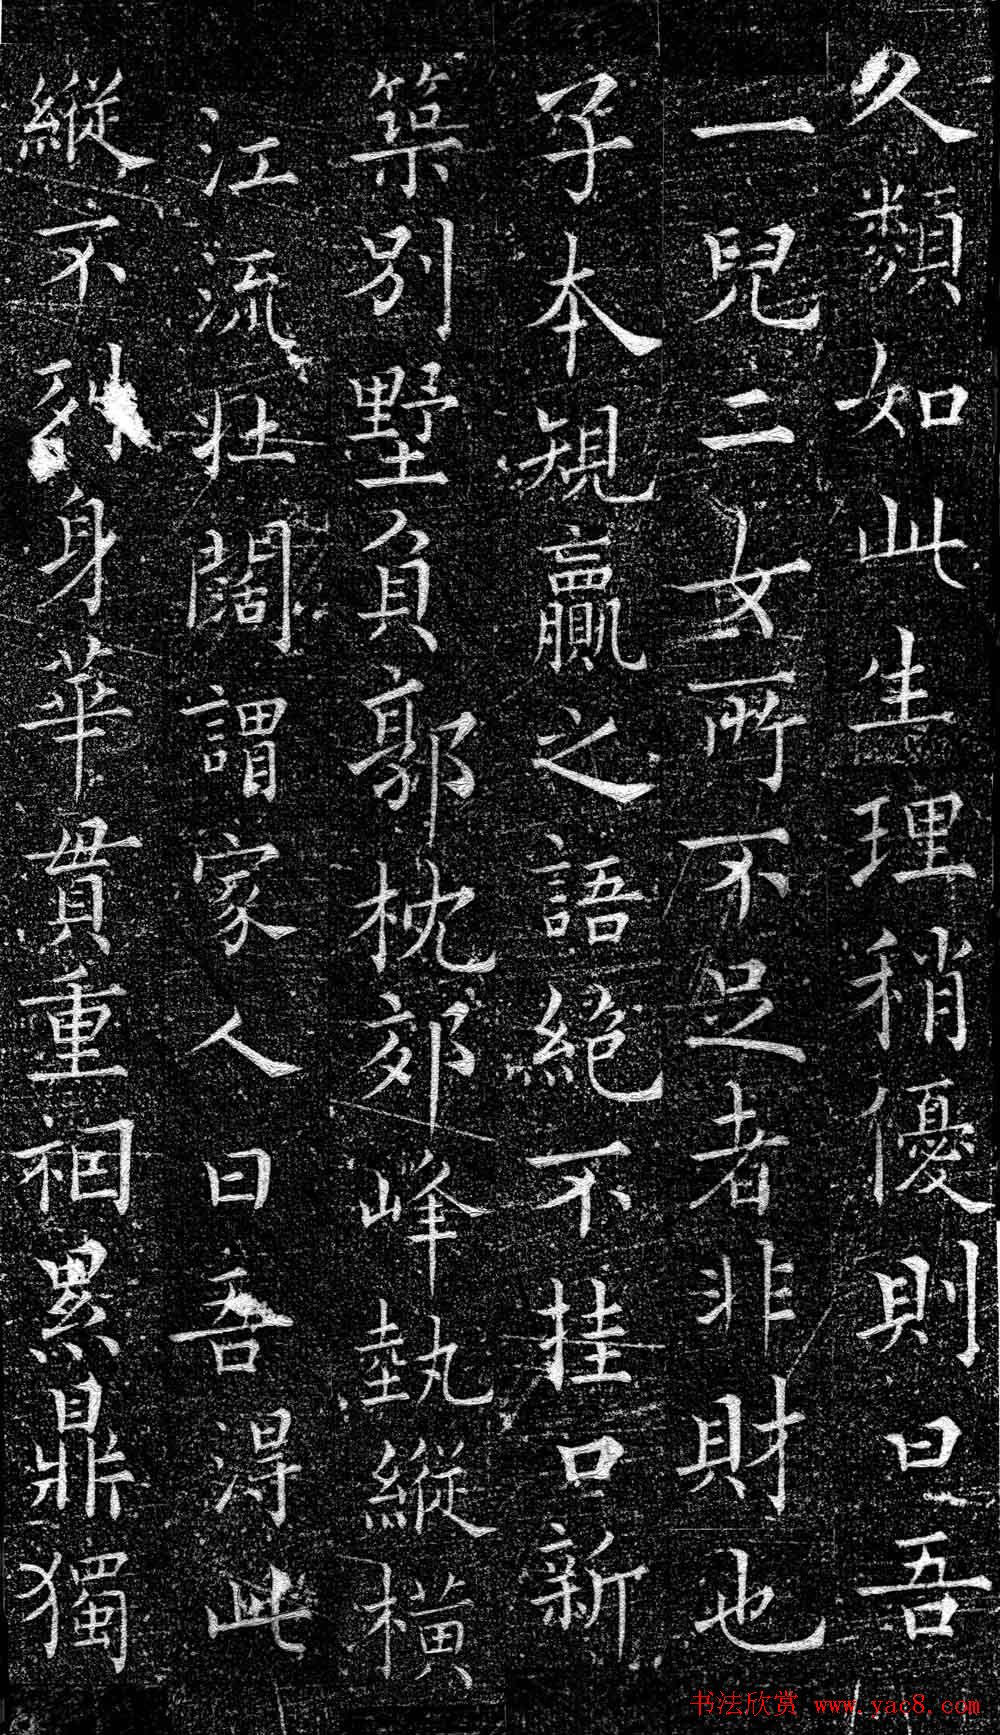 久類如此生理稍優則曰吾
一兒二女所不足者非財也
子本規贏之語絕不挂口新
築別墅負郭枕郊峰埶縱橫
江流壯闊謂家人曰吾得此
縱不列身華貫重裀累鼎獨
书法欣赏 www.yac8.com